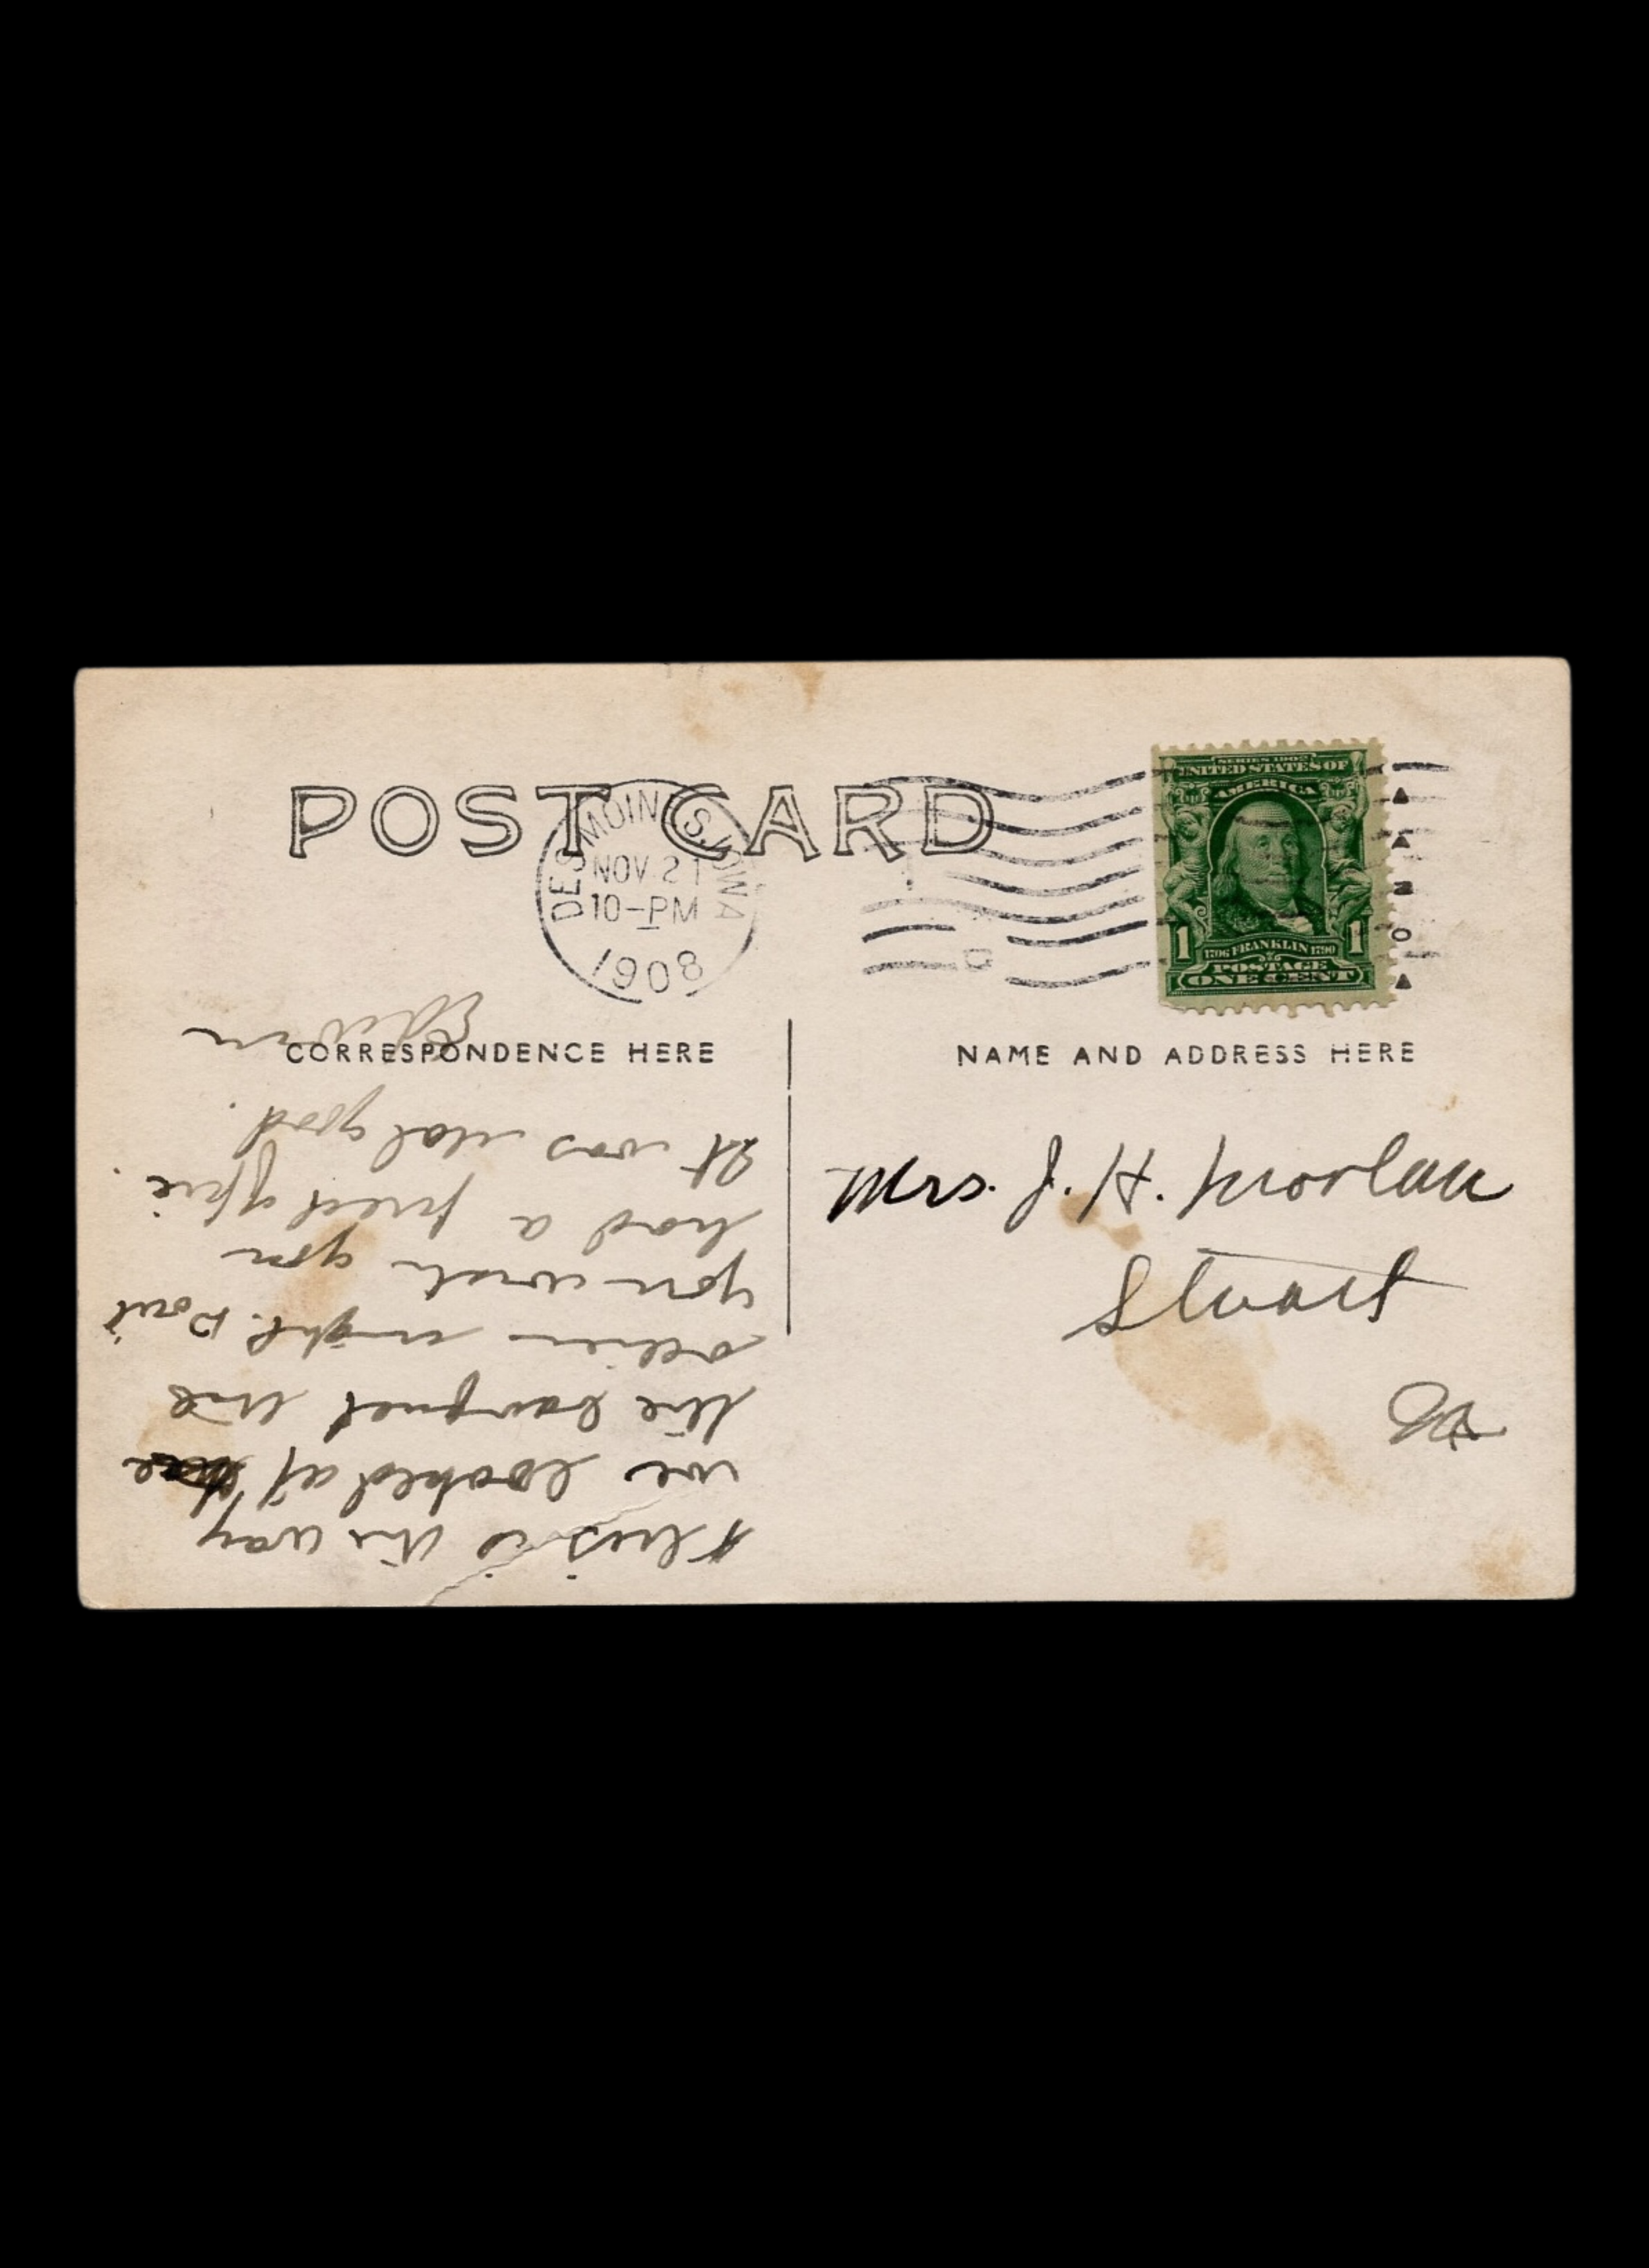 POST CARD
DES MOINES, IOWA
NOV 21
10-PM
1908
SERIES 1902
UNITED STATES OF
AMERICA
1 1706 FRANKLIN 1790 1
POSTAGE
ONE CENT
CORRESPONDENCE HERE
NAME AND ADDRESS HERE
Mrs. J. H.
Stuart
Ia
This is the way
we looked at the
the banquet the
other night. Dont
you wish you
had a piece of pie.
It was real good.
Edwin